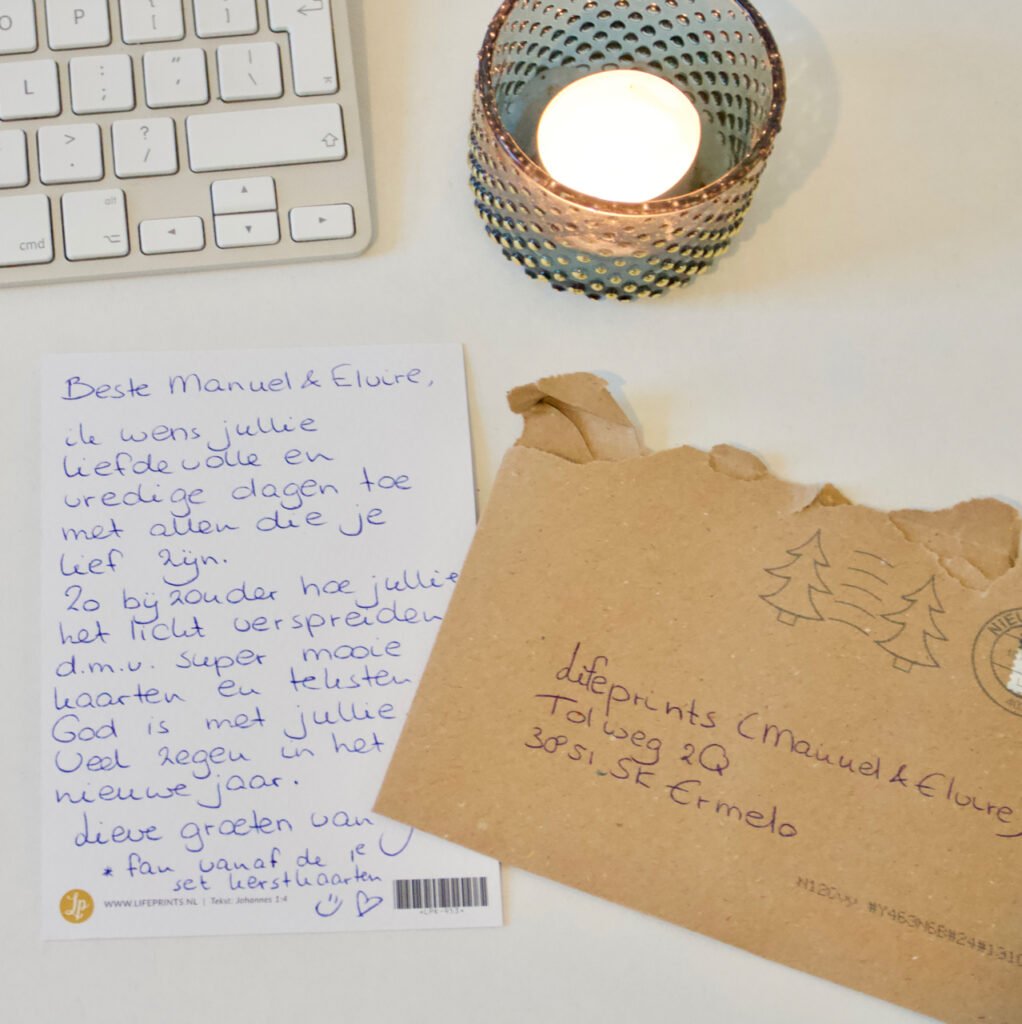 O
P
{
[
}
]
L
:
;
"
'
|
\
>
.
?
/
alt
cmd
Beste Manuel & Elvire,
ik wens jullie
liefdevolle en
vredige dagen toe
met allen die je
lief zijn.
Zo bijzonder hoe jullie
het licht verspreiden
d.m.v. super mooie
kaarten en teksten
God is met jullie.
Veel zegen in het
nieuwe jaar.
Lieve groeten van
* fan vanaf de 1e
set kerstkaarten
Lp
WWW.LIFEPRINTS.NL | Tekst: Johannes 1:4
*LPK-953*
NIEU
Lifeprints (Manuel & Elvire)
Tolweg 2Q
3851 SE Ermelo